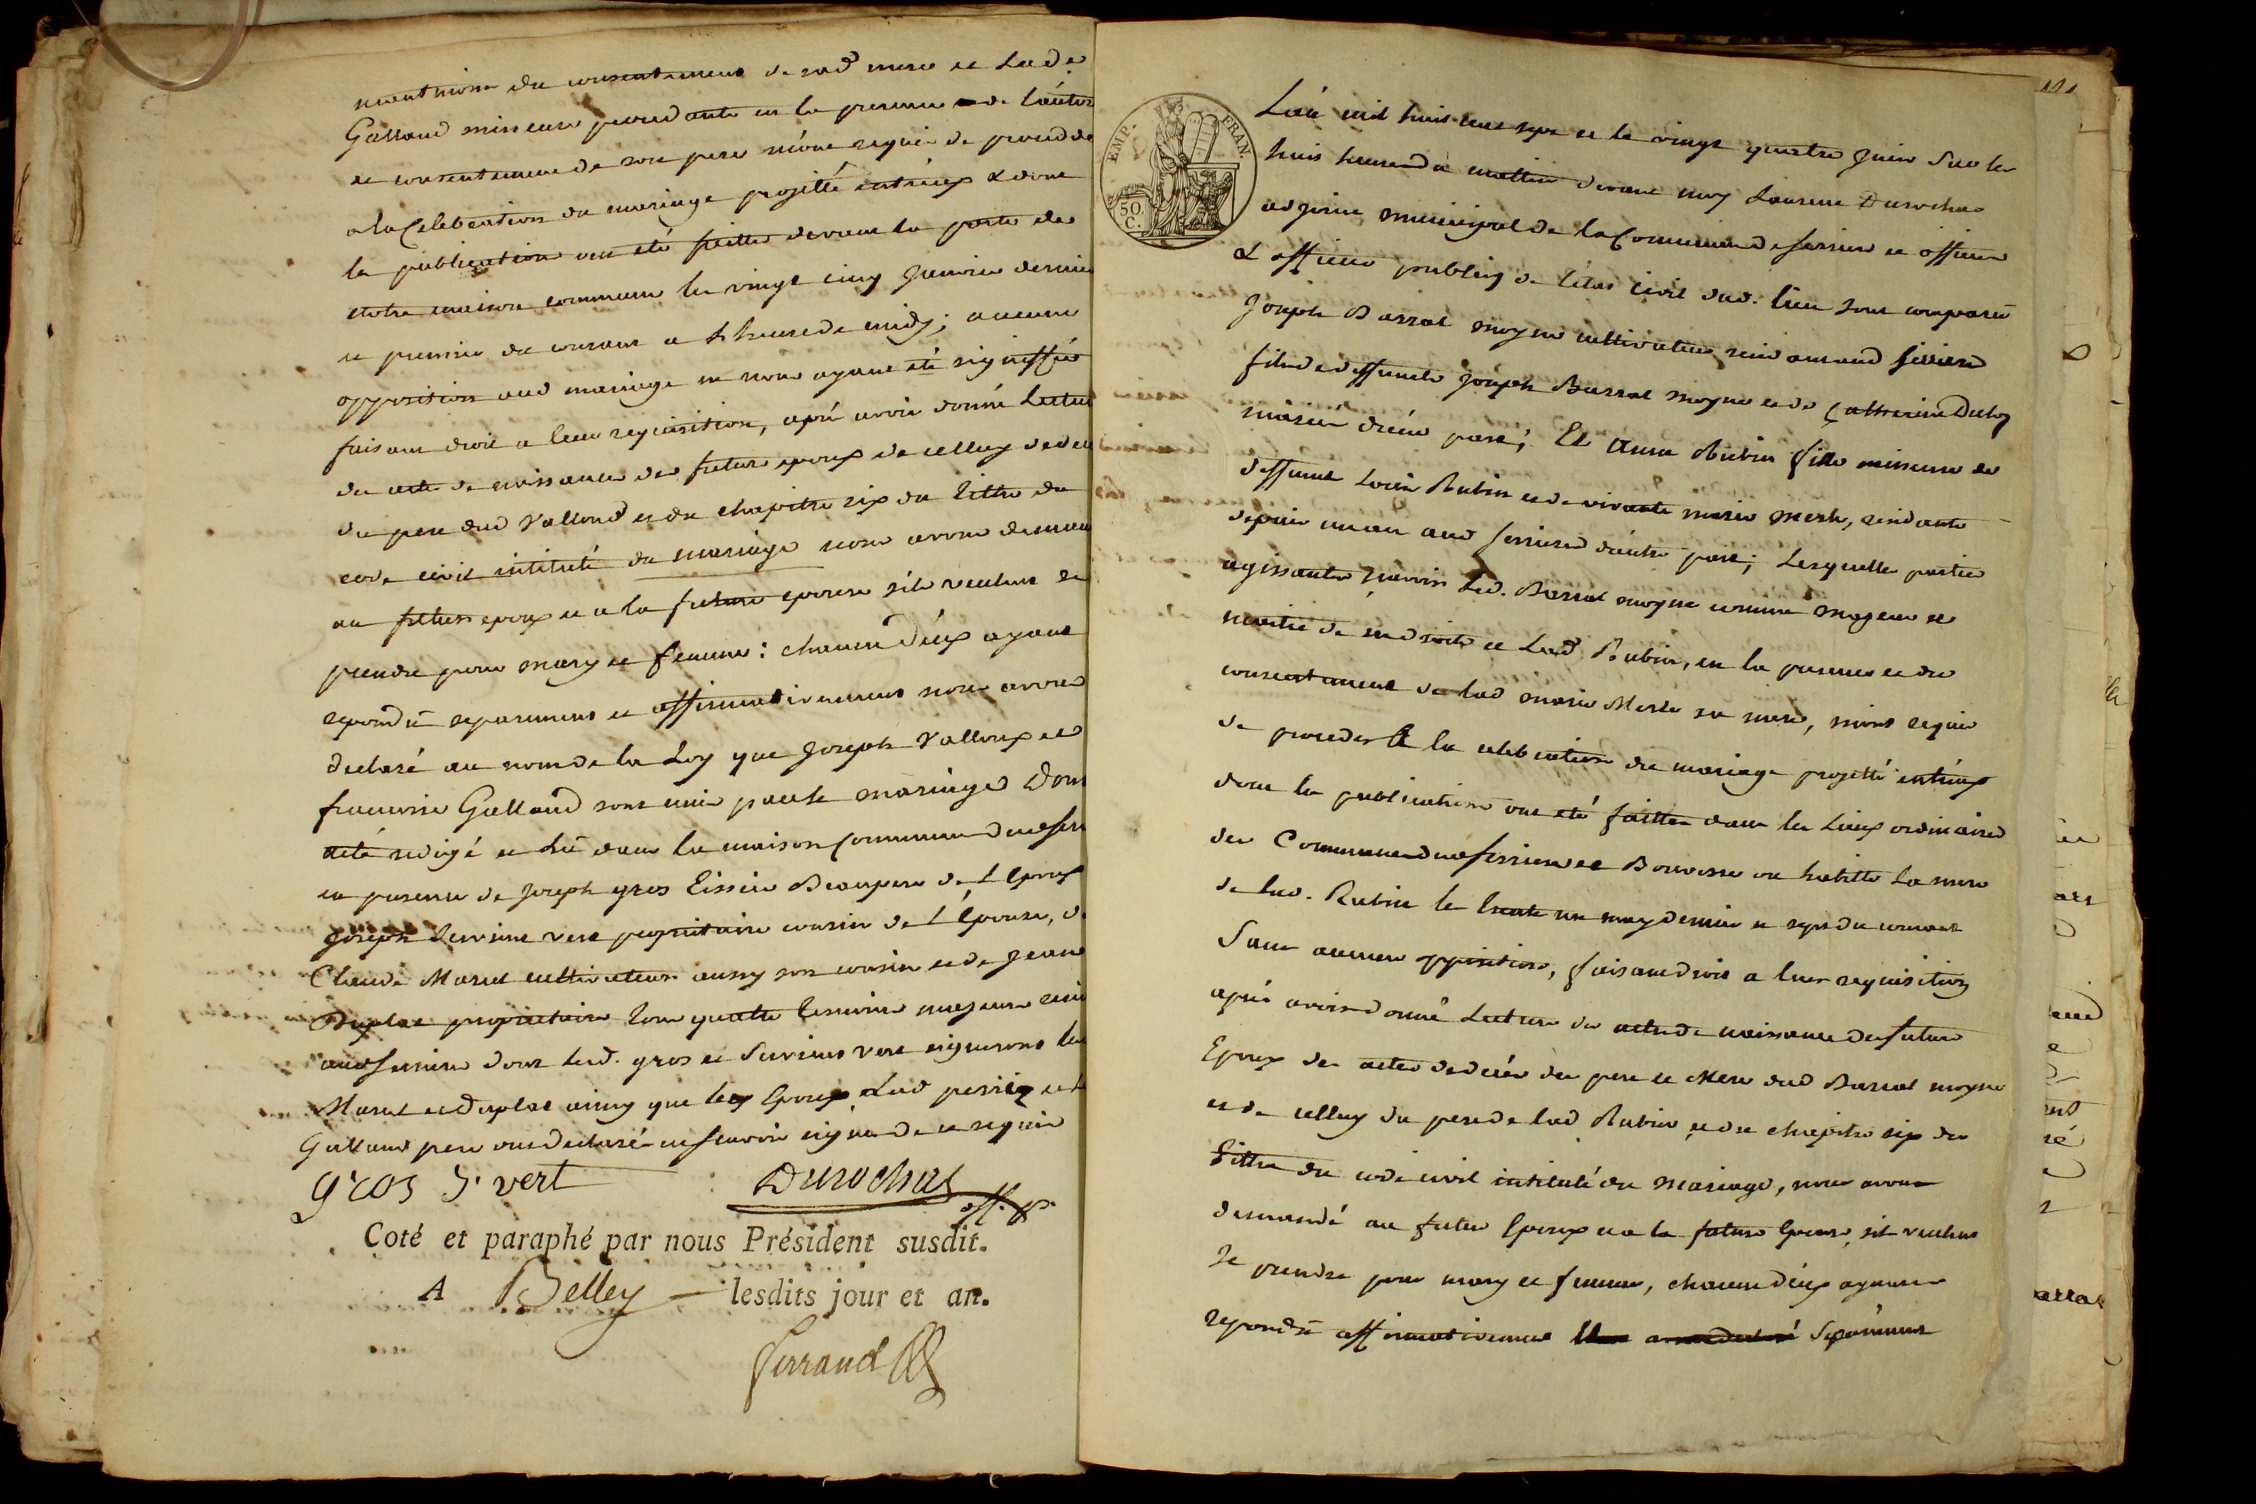 du consentement de sad mere et Lad.
Galland mineure procedante en la presence de l'autor
et consentement de son pere mont requis de procedder
a la Celebration du mariage projetté entreux & dont
la publication ont été faitte devant la porte de
notre maison commune le vingt cinq janvier dernier
et premier du courant a l'heure de midy; aucune
opposition aud mariage ne nous ayant été signiffiée
faisant droit a leur requisition, aprés avoir donné lecture
des actes de naissance des futurs epoux de celluy de deces
du pere dud Valloud et du chapitre six du titre du
code civil intitulé du mariage nous avons demandé
au futur epoux et a la future epouse s'ils veulent se
prendre pour mary et femme : chacun d'eux ayant
repondû separement et affirmativement nous avons
declaré au nom de la Loy que Joseph Valloux et
francoise Galland sont unis par le mariage Dont
acte redigé et Lû dans la maison Commune
en presence de Joseph gros Beaupere de L'Epoux
joseph Servieux vert proprietaire cousin de L'Epouse, de
Claude Marut cultivateur aussy son cousin et de Jean
Duplat proprietaire tous quatre temoins majeurs
dont lesd. gros et Servieux vert signeront les
Marut et Duplat ainsy que les Epoux Lad et
Galland pere ont declaré ne savoir signer de ce requis
gros S. vert Durochat off. p.
Coté et paraphé par nous Président susdit.
A Belley lesdits jour et an.
Ferrand
EMP. FRAN.
50 C.
L'an mil huit cent sept et le vingt quatre juin sur les
huit heures du mattin devant moy Laurent Durochat
adjoint municipal de la Commune de et officier
& officier public de l'etat civil dud. lieu sont comparû
Joseph Barrat moyne cultivateur
fils de deffunts Joseph Barrat moyne et de Catherine
mariés d'une part; Et Anne Rubin fille mineure de
deffunt Louis Rubin et de vivante marie Merle, residante
depuis un an aud d'autre part; Lesquelles parties
agissantes sçavoir Led. Barrat moyne comme majeur et
maitre de ses droits et Lad Rubin, en la presence et du
consentement de lad marie Merle sa mere, mont requis
de proceder A la celebration du mariage projetté entreux
dont la publication ont été faittes dans les Lieux ordinaires
des Communes et Bouvesse ou habitte la mere
de lad. Rubin le trente un may dernier et sept du courant
Sans aucune opposition, faisant droit a leur requisition
après avoir donné Lecture des actes de naissance des futurs
Epoux des actes de decés des pere et Mere dud Barrat moyne
et de celluy du pere de lad Rubin et du chapitre six du
tittre du code civil intitulé du Mariage, nous avons
demandé au futur Epoux et a la future Epouse sils veulent
se prendre pour mary et femme, chacun d'eux ayant
repondû affirmativement separement